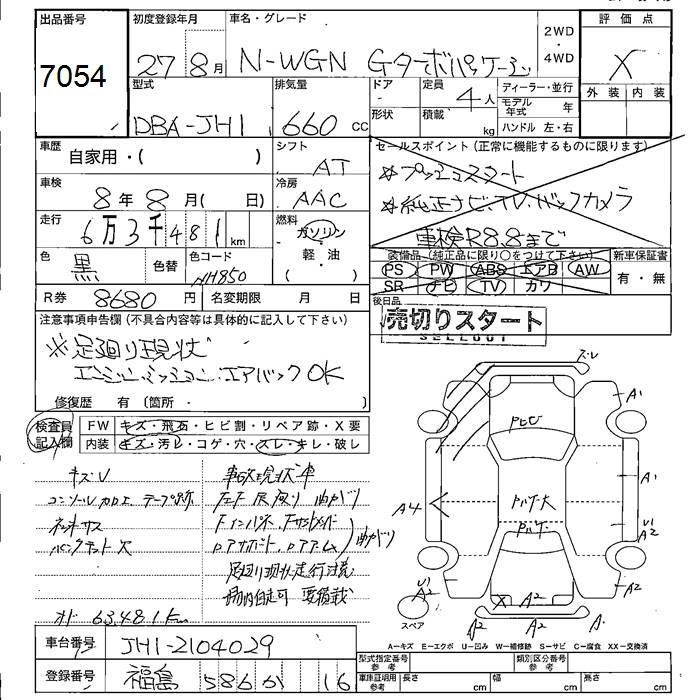 出品番号
7054
初度登録年月
27 8月
車名・グレード
N-WGN Gターボパッケージ
2WD
・
4WD
評価点
X
外装 内装
型式
DBA-JH1
排気量
660 CC
ドア
-
形状
定員
4人
積載 kg
ディーラー・並行
モデル年式 年
ハンドル 左・右
車歴
自家用・( )
シフト
AT
セールスポイント (正常に機能するものに限ります)
※プッシュスタート
※純正ナビ、TV、バックカメラ
車検R8.8まで
車検
8年 8月( 日)
冷房
AAC
走行
6万3千481km
燃料
ガソリン
軽・油
( )
色
黒
色替
色コード
NH850
装備品(純正品に限り○をつけて下さい)
PS PW ABS エアB AW
SR ナビ TV カワ
新車保証書
有・無
R券 8680円
名変期限 月 日
後日品
売切りスタート
SELLOUT
注意事項申告欄(不具合内容等は具体的に記入して下さい)
※足廻り現状
エンジン・ミッション・エアバックOK
修復歴 有(箇所・ )
検査員記入欄
FW キズ・飛石・ヒビ割・リペア跡・X要
内装 キズ・汚レ・コゲ・穴・スレ・キレ・破レ
キズU
事故現状車
コンソールカロエ テープ跡
パンクキット欠
足廻り現状 走行注意
場内自走可 要積載
オド 63,481km
ズレ
A1
A1
U1
A2
A4
U1
A2
X A2
A2
A2
A1
スペア
A-キズ E-エクボ U-凹み W-補修跡 S-サビ C-腐食 XX-交換済
車台番号
JH1-2104029
登録番号
福島 586 か 16
型式指定番号
参考
類別区分番号
参考
車庫証明用
参考
長さ cm
幅 cm
高さ cm